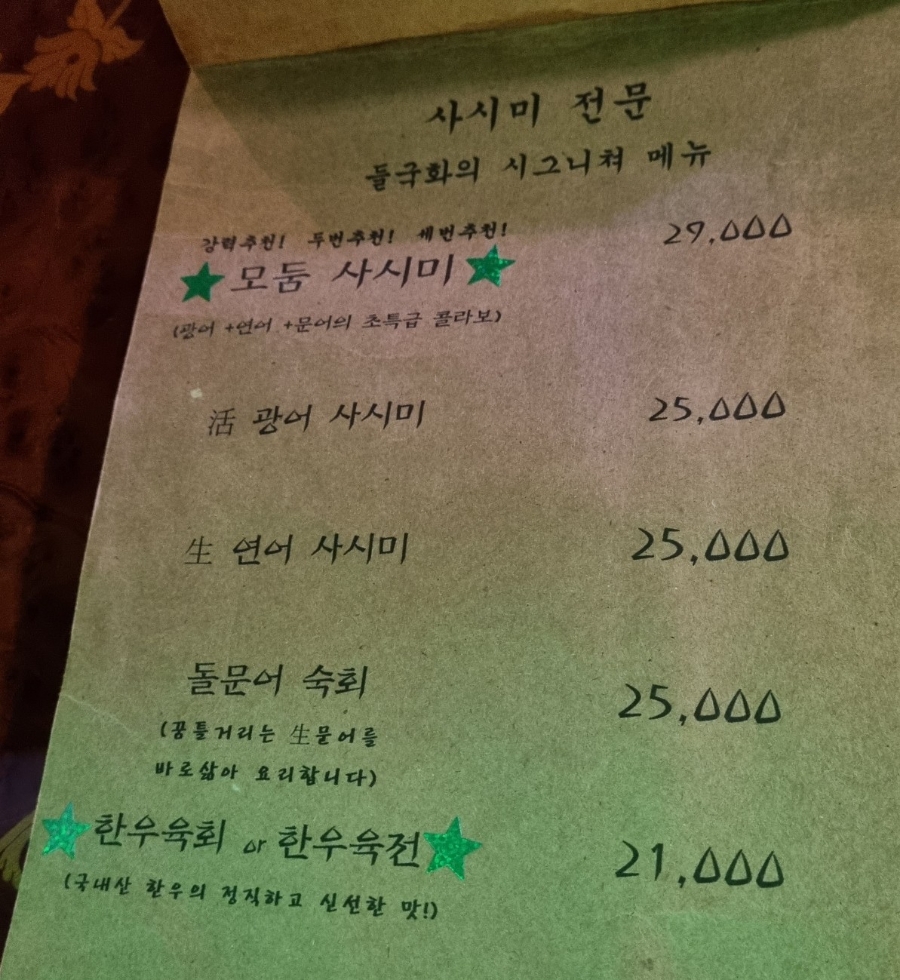 사시미 전문
들국화의 시그니쳐 메뉴
강력추천! 두번추천! 세번추천!
모둠 사시미 29,000
(광어+연어+문어의 초특급 콜라보)
活 광어 사시미 25,000
生 연어 사시미 25,000
돌문어 숙회 25,000
(꿈틀거리는 生문어를
바로삶아 요리합니다)
한우육회 or 한우육전 21,000
(국내산 한우의 정직하고 신선한 맛!)